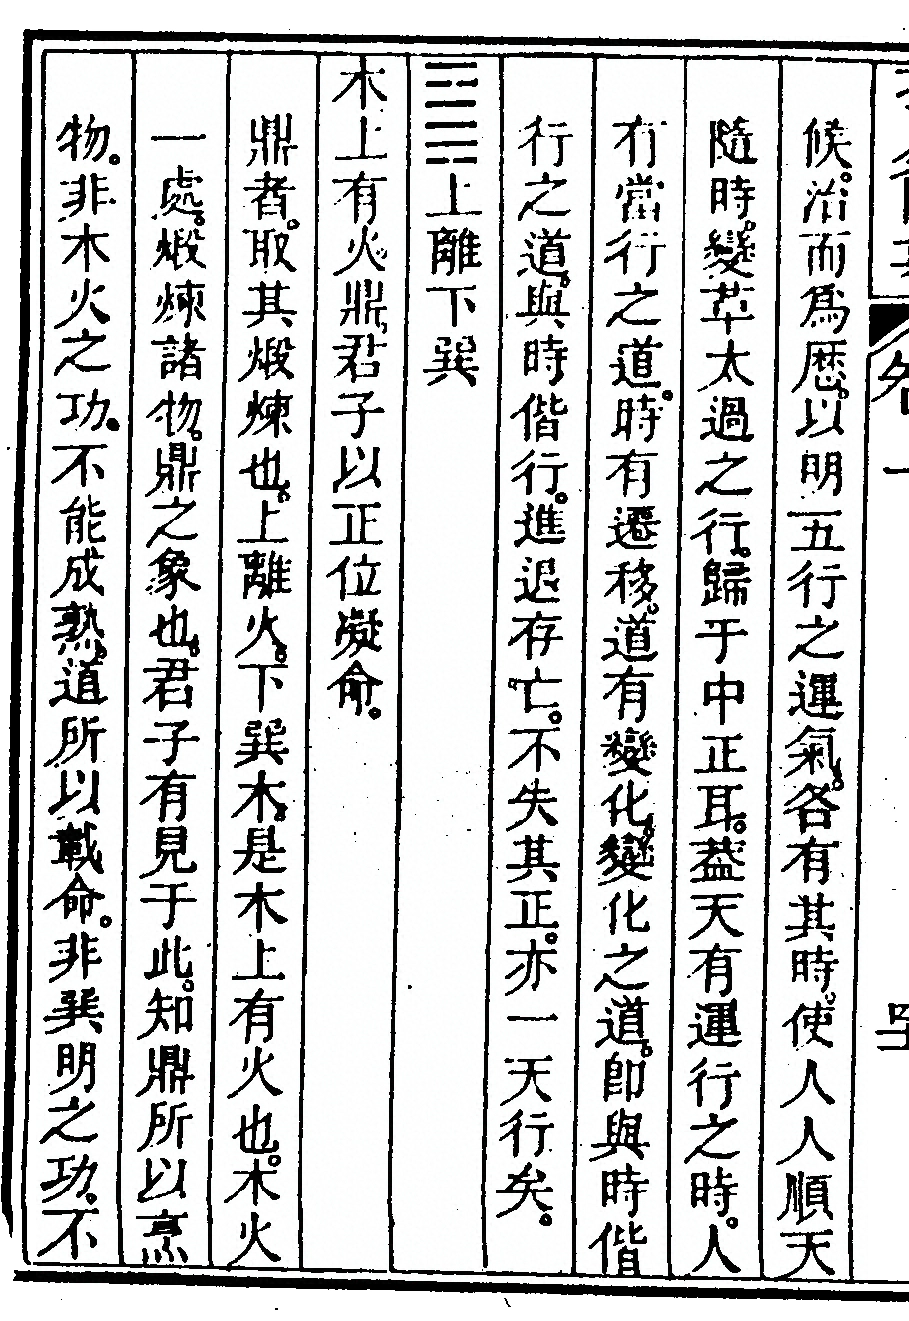 候。治而爲厯。以明五行之運氣。各有其時。使人人順天
隨時。變革太過之行。歸于中正耳。葢天有運行之時。人
有當行之道。時有遷移。道有變化。變化之道。卽與時偕
行之道。與時偕行。進退存亡。不失其正。亦一天行矣。
䷱上離下巽
木上有火鼎。君子以正位凝命。
鼎者。取其煅煉也。上離火。下巽木。是木上有火也。木火
一處。煅煉諸物。鼎之象也。君子有見于此。知鼎所以烹
物。非木火之功。不能成熟。道所以載命。非巽明之功。不